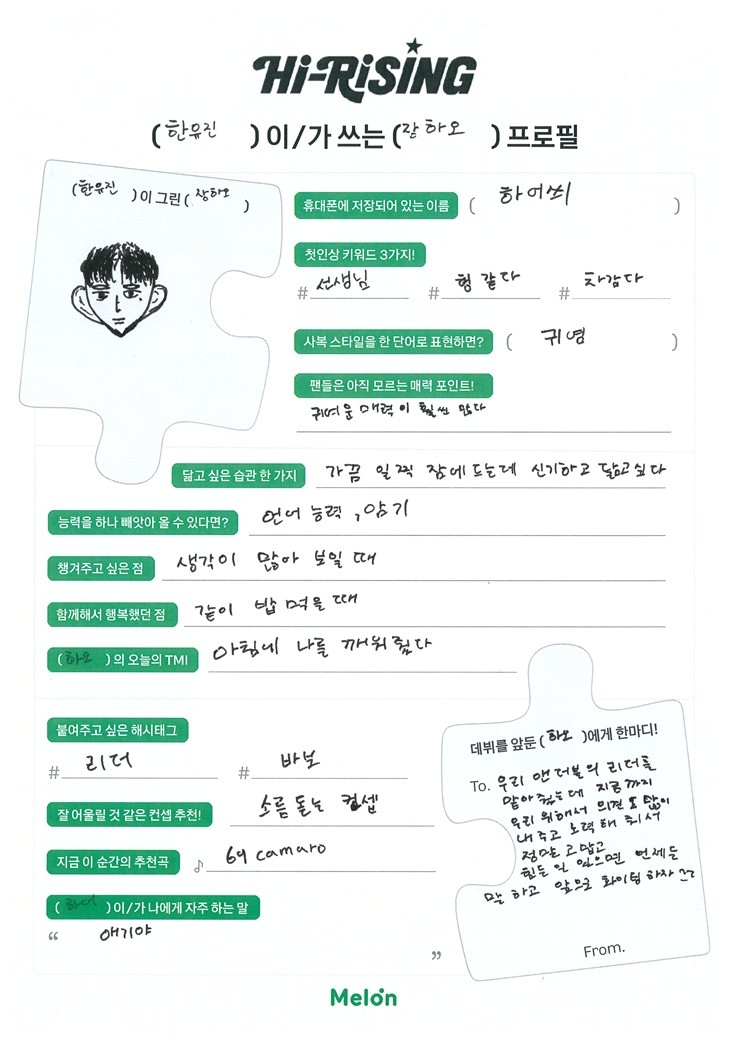 Hi-RiSiNG
(한유진) 이/가 쓰는 (장하오) 프로필
(한유진)이 그린 (장하오)
휴대폰에 저장되어 있는 이름 (하어씌)
첫인상 키워드 3가지!
# 선생님 # 형 같다 # 차갑다
사복 스타일을 한 단어로 표현하면? (귀염)
팬들은 아직 모르는 매력 포인트!
귀여운 매력이 훨씬 많다
닮고 싶은 습관 한 가지 가끔 일찍 잠에 드는데 신기하고 닮고싶다
능력을 하나 빼앗아 올 수 있다면? 언어 능력, 암기
챙겨주고 싶은 점 생각이 많아 보일 때
함께해서 행복했던 점 같이 밥 먹을 때
(하오)의 오늘의 TMI 아침에 나를 깨워줬다
붙여주고 싶은 해시태그
# 리더 # 바보
잘 어울릴 것 같은 컨셉 추천! 소름 돋는 컨셉
지금 이 순간의 추천곡 ♪ 69 camaro
(하어)이/가 나에게 자주 하는 말
“ 애기야 ”
데뷔를 앞둔 (하오)에게 한마디!
To. 우리 앤더블의 리더를
맡아줬는데 지금까지
우리 위해서 의견도 많이
내주고 노력해 줘서
정말 고맙고
힘든 일 있으면 언제든
말 하고 앞으로 화이팅 하자
From.
Melon